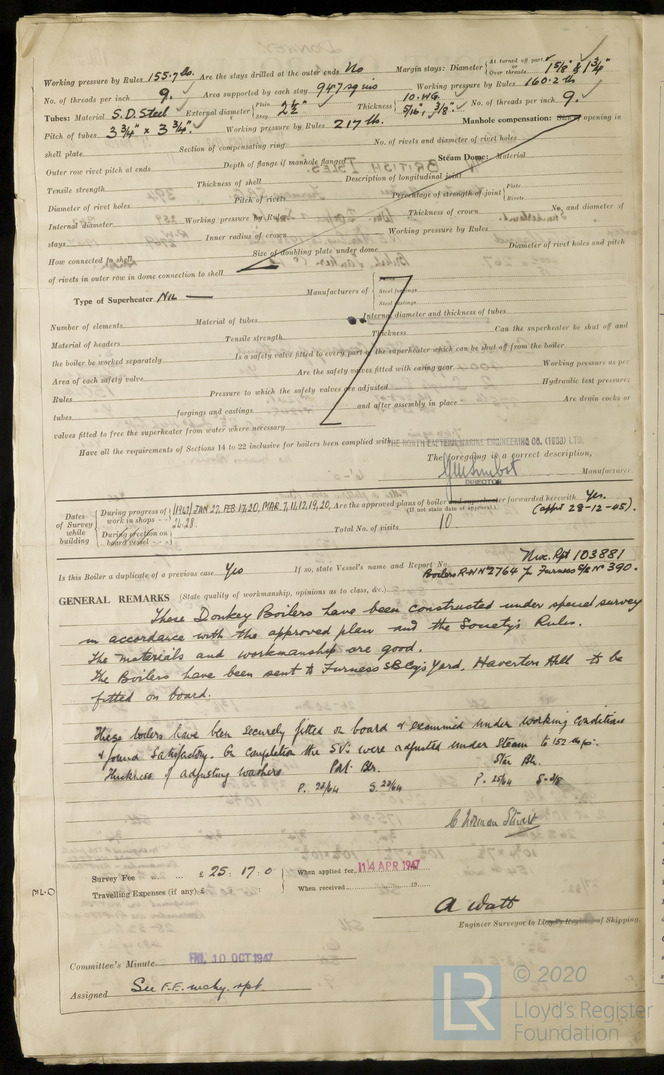 Working pressure by Rules 155.7 lbs. Are the stays drilled at the outer ends No Margin stays: Diameter { At turned off part, or Over threads 1 5/8" & 1 3/4"
No. of threads per inch 9. Area supported by each stay 947 sq ins Working pressure by Rules 160.2 lb
Tubes: Material S.D. Steel External diameter { Plain Stay 2 1/2" Thickness { 10. W.G. 5/16", 3/8". No. of threads per inch 9.
Pitch of tubes 3 3/4" x 3 3/4". Working pressure by Rules 217 lb. Manhole compensation: Size of opening in
shell plate Section of compensating ring No. of rivets and diameter of rivet holes
Outer row rivet pitch at ends Depth of flange if manhole flanged Steam Dome: Material
Tensile strength Thickness of shell Description of longitudinal joint
Diameter of rivet holes Pitch of rivets Percentage of strength of joint { Plate Rivets
Internal diameter Working pressure by Rules Thickness of crown No. and diameter of
stays Inner radius of crown Working pressure by Rules
How connected to shell Size of doubling plate under dome Diameter of rivet holes and pitch
of rivets in outer row in dome connection to shell
Type of Superheater NIL Manufacturers of { Tubes Steel forgings Steel castings
Number of elements Material of tubes Internal diameter and thickness of tubes
Material of headers Tensile strength Thickness Can the superheater be shut off and
the boiler be worked separately Is a safety valve fitted to every part of the superheater which can be shut off from the boiler
Area of each safety valve Are the safety valves fitted with easing gear Working pressure as per
Rules Pressure to which the safety valves are adjusted Hydraulic test pressure:
tubes forgings and castings and after assembly in place Are drain cocks or
valves fitted to free the superheater from water where necessary
Have all the requirements of Sections 14 to 22 inclusive for boilers been complied with
THE NORTH EASTERN MARINE ENGINEERING CO. (1938) LTD.
The foregoing is a correct description,
Manufacturer.
DIRECTOR
Dates of Survey while building { During progress of work in shops - - } 1947 JAN 27, FEB 17, 20, MAR 7, 11, 12, 19, 20, 26. 28. Are the approved plans of boiler and superheater forwarded herewith Yes.
(If not state date of approval.) (appd 28-12-45).
{ During erection on board vessel - - - } Total No. of visits 10
Nwc. Rpt 103881
Is this Boiler a duplicate of a previous case Yes If so, state Vessel's name and Report No. Boilers R.W. No 2764 for Furness S/B No 390.
GENERAL REMARKS (State quality of workmanship, opinions as to class, &c.)
These Donkey Boilers have been constructed under special survey
in accordance with the approved plan and the Society's Rules.
The materials and workmanship are good.
The Boilers have been sent to Furness SB Coy's Yard, Haverton Hill to be
fitted on board.
These boilers have been securely fitted on board & examined under working conditions
& found satisfactory. On completion the SVs. were adjusted under steam to 152 lbs
Thickness of adjusting washers Port Blr. Star Blr.
P. 23/64 S. 23/64 P. 25/64 S. 3/8
C Norman Stuart
Survey Fee ... ... £ 25 : 17 : 0 When applied for, 14 APR 1947
Travelling Expenses (if any) £ : : When received, 19
A Watt
Engineer Surveyor to Lloyd's Register of Shipping.
Committee's Minute FRI. 10 OCT 1947
Assigned See F.E. mchy. rpt
© 2020
LR
Lloyd's Register
Foundation